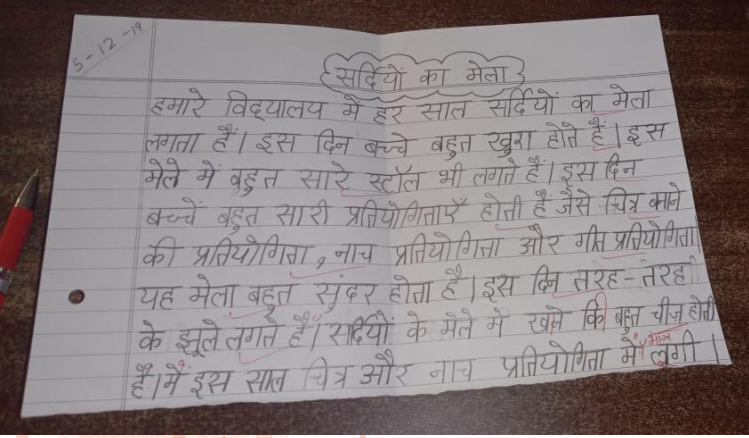 5-12-19
सर्दियों का मेला
हमारे विद्यालय में हर साल सर्दियों का मेला
लगता हैं। इस दिन बच्चे बहुत खुश होते हैं। इस
मेले में बहुत सारे स्टॉल भी लगते हैं। इस दिन
बच्चें बहुत सारी प्रतियोगिताएँ होती है जैसे चित्र बनाने
की प्रतियोगिता, नाच प्रतियोगिता और गीत प्रतियोगिता
यह मेला बहुत सुंदर होता है। इस दिन तरह-तरह
के झूले लगते हैं। सर्दियों के मेले में खाने कि बहुत चीज होती
है। मैं इस साल चित्र और नाच प्रतियोगिता में भाग लूंगी।